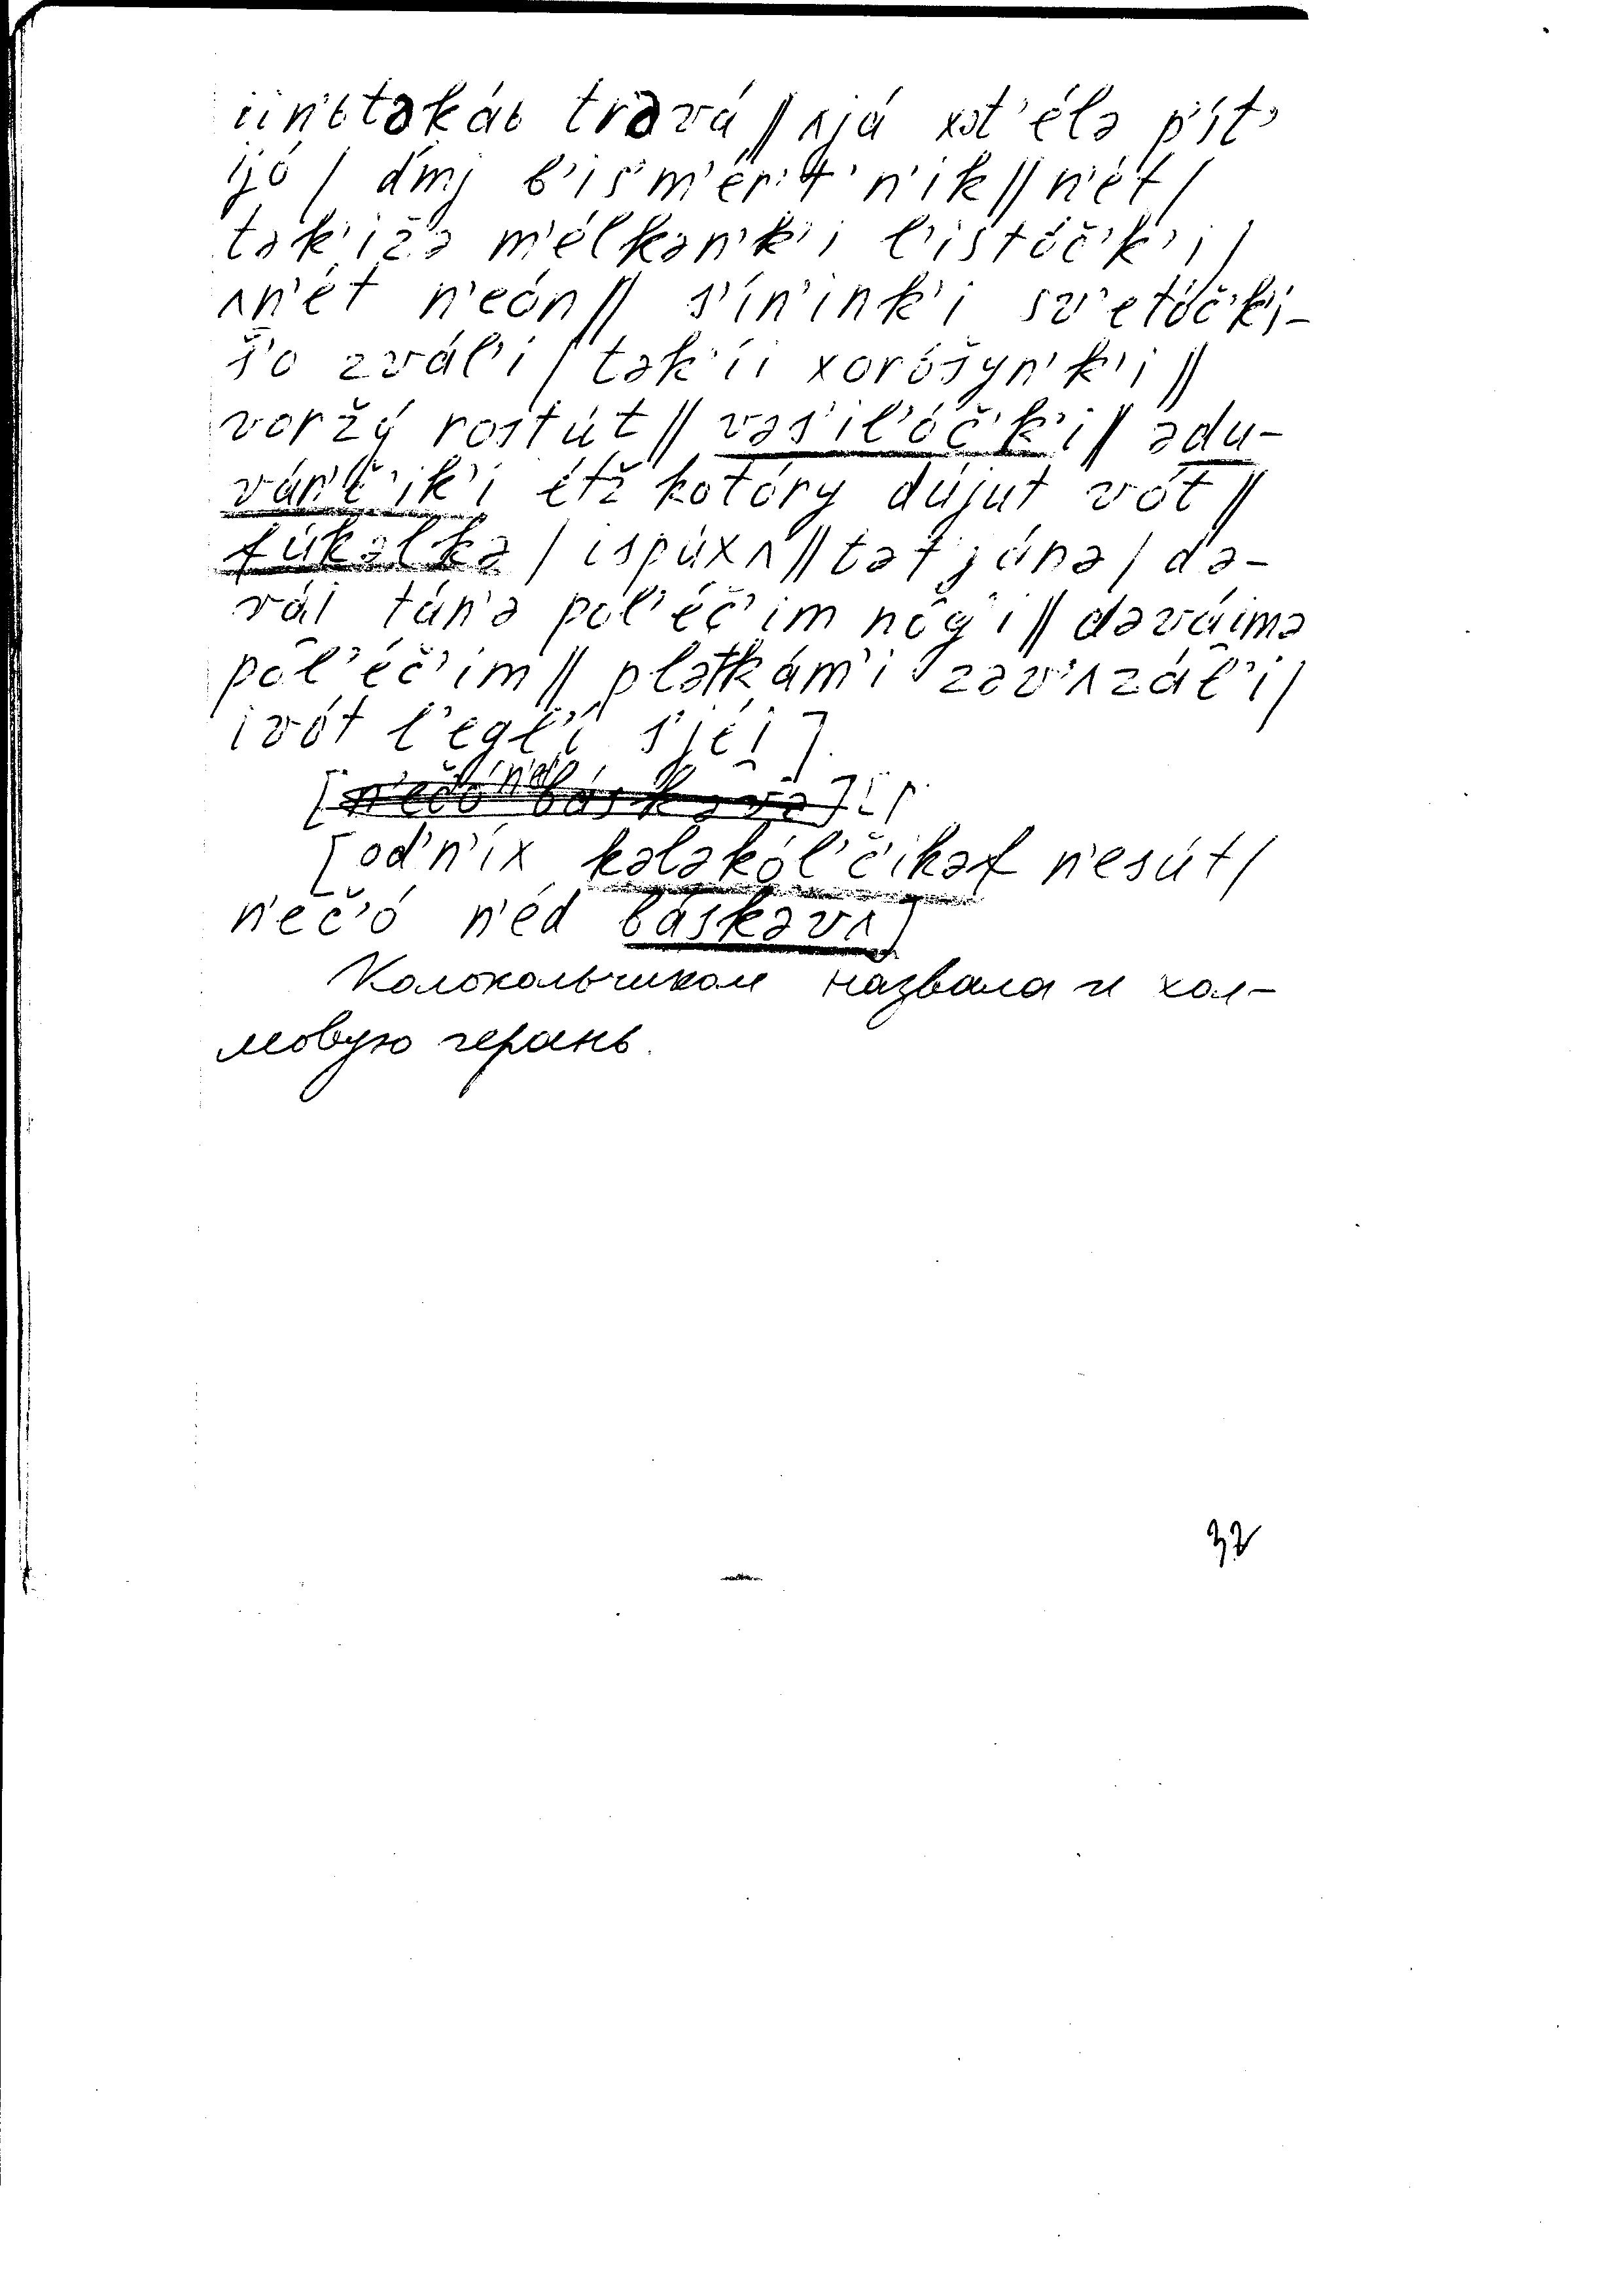 iin'ьtəkáь trəvá // ʌjá xət'élə p'ít'
ijó / d'mj b'is'm'ér't'n'ik // n'ét /
tək'ižə m'élkən'k'i l'istóč'k'i /
ʌn'ét n'eón // s'ín'ink'i sv'etóčk'i-
šo zvál'i / tək'íi xoróšyn'k'i //
voržý rostút // vəs'il'óč'k'i // ədu-
ván'č'ik'i étž kotóry dújut vót //
fúkəlkə / ispúxʌ // tət'jánə / də-
vái tán'ə pol'éč'im nóg'i // dəváimə
pôl'éč'im // plətkám'i zəv'ʌzál'i /
ivót l'egl'í s'jéi ]
[od'n'íx kələkól'č'ikəf n'esút /
n'eč'ó n'éd báskəvʌ]
Колокольчиком назвала и хол-
мовую герань.
37